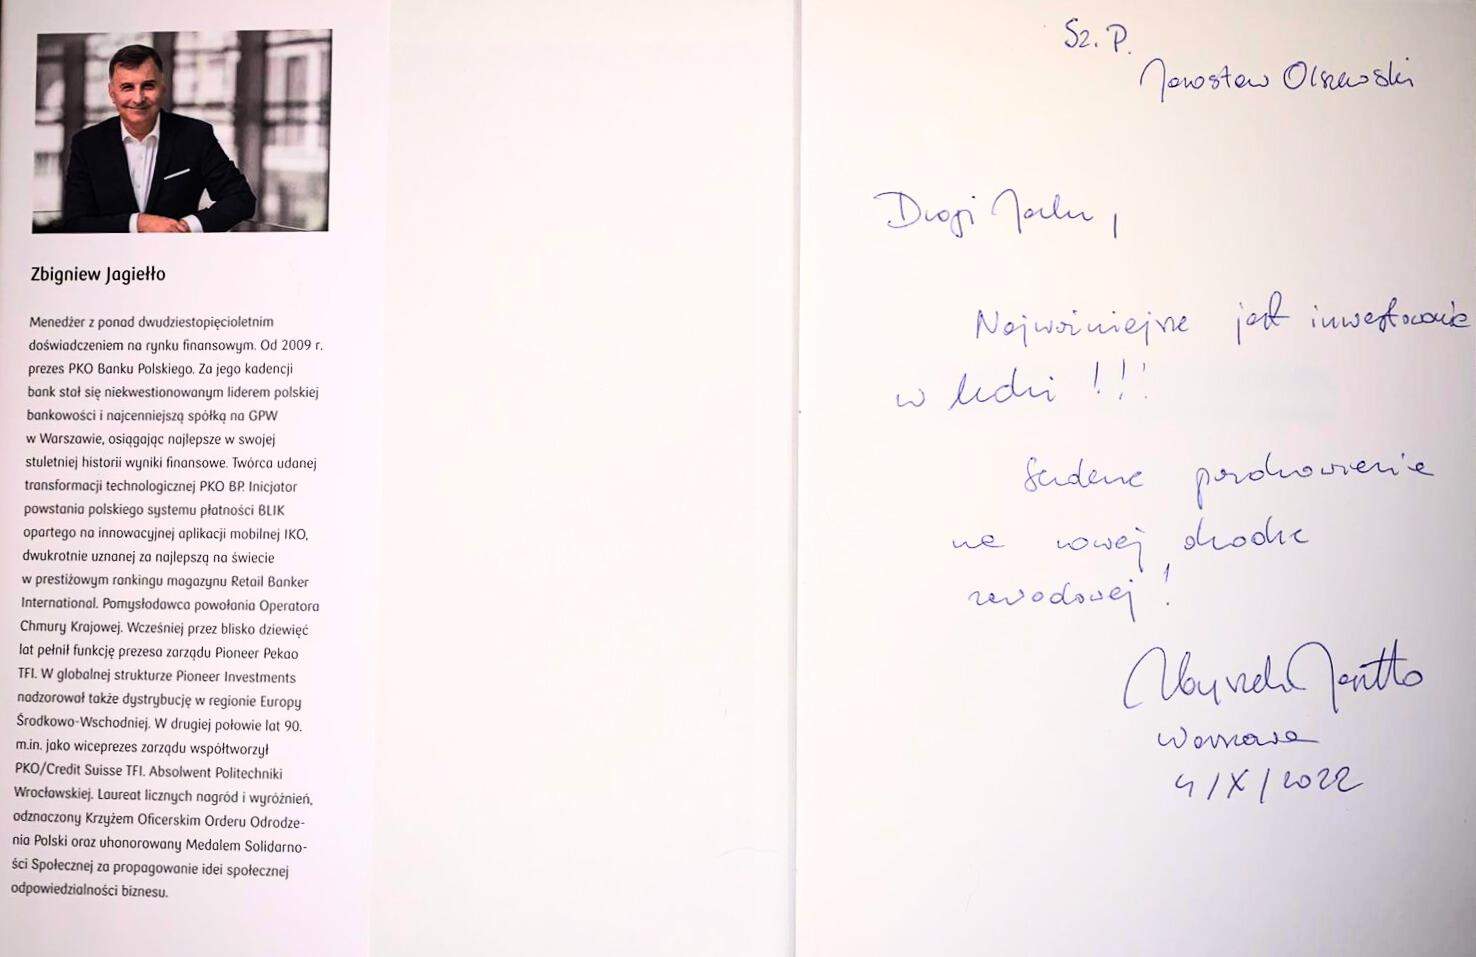 Zbigniew Jagiełło
Menedżer z ponad dwudziestopięcioletnim
doświadczeniem na rynku finansowym. Od 2009 r.
prezes PKO Banku Polskiego. Za jego kadencji
bank stał się niekwestionowanym liderem polskiej
bankowości i najcenniejszą spółką na GPW
w Warszawie, osiągając najlepsze w swojej
stuletniej historii wyniki finansowe. Twórca udanej
transformacji technologicznej PKO BP. Inicjator
powstania polskiego systemu płatności BLIK
opartego na innowacyjnej aplikacji mobilnej IKO,
dwukrotnie uznanej za najlepszą na świecie
w prestiżowym rankingu magazynu Retail Banker
International. Pomysłodawca powołania Operatora
Chmury Krajowej. Wcześniej przez blisko dziewięć
lat pełnił funkcję prezesa zarządu Pioneer Pekao
TFI. W globalnej strukturze Pioneer Investments
nadzorował także dystrybucję w regionie Europy
Środkowo-Wschodniej. W drugiej połowie lat 90.
m.in. jako wiceprezes zarządu współtworzył
PKO/Credit Suisse TFI. Absolwent Politechniki
Wrocławskiej. Laureat licznych nagród i wyróżnień,
odznaczony Krzyżem Oficerskim Orderu Odrodze-
nia Polski oraz uhonorowany Medalem Solidarno-
ści Społecznej za propagowanie idei społecznej
odpowiedzialności biznesu.
Sz. P.
Jarosław Olszewski
Drogi Jarku,
Najważniejsze jest inwestowanie
w ludzi !!!
Serdeczne pozdrowienia
na nowej drodze
zawodowej !
Zbigniew Jagiełło
Warszawa
4/X/2022